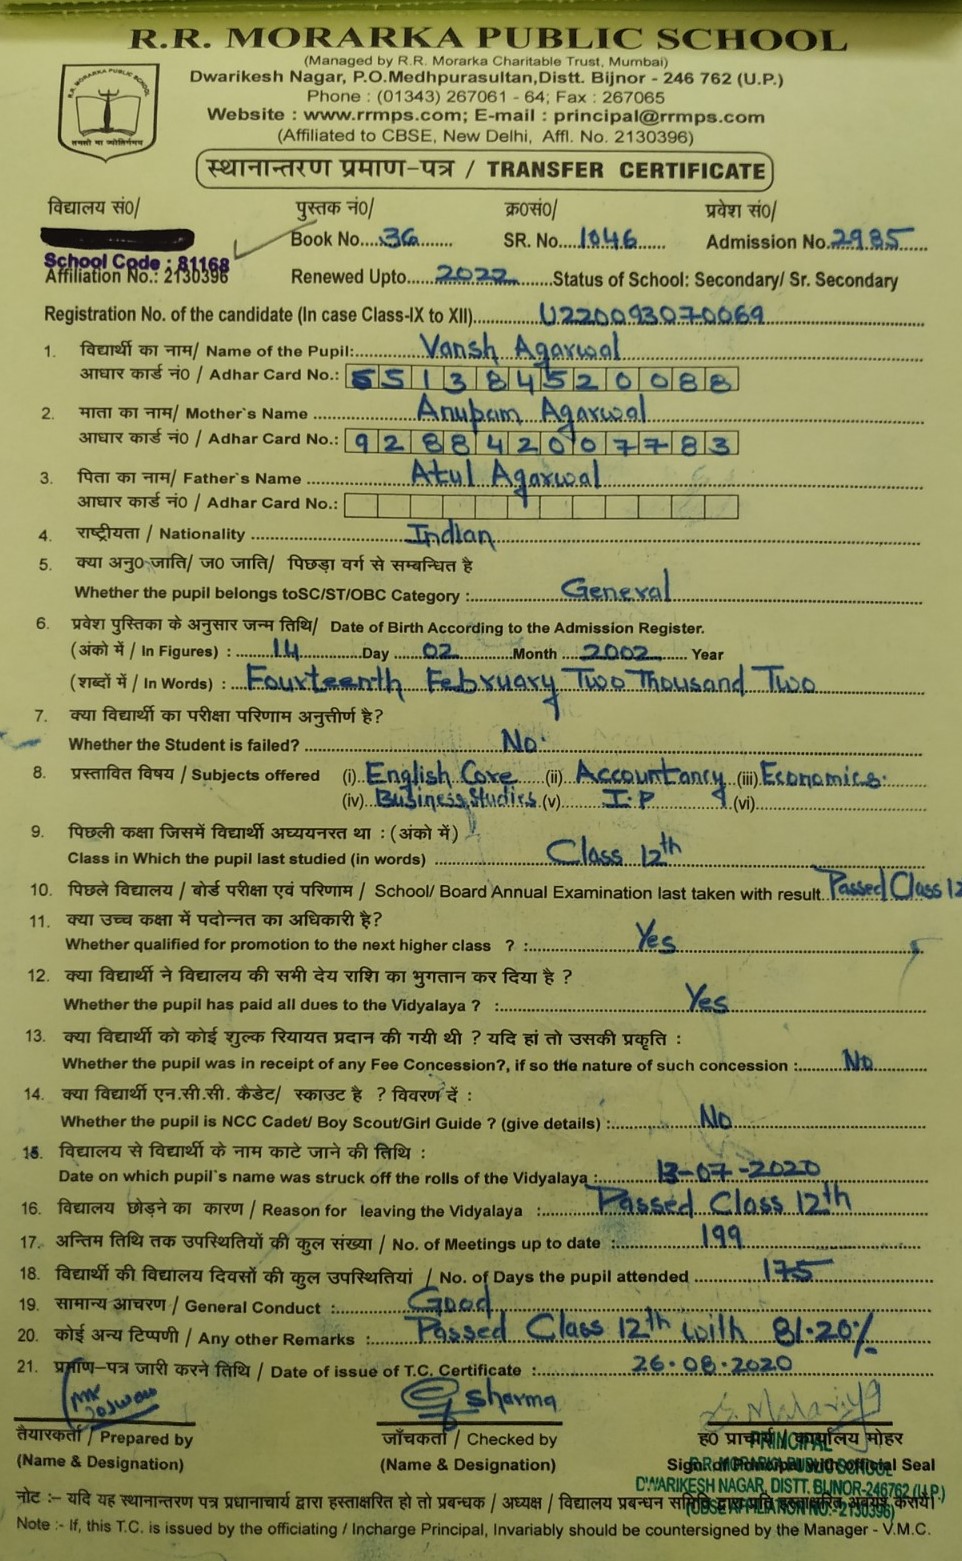 R.R. MORARKA PUBLIC SCHOOL
(Managed by R.R. Morarka Charitable Trust, Mumbai)
Dwarikesh Nagar, P.O.Medhpurasultan,Distt. Bijnor - 246 762 (U.P.)
Phone : (01343) 267061 - 64; Fax : 267065
Website : www.rrmps.com; E-mail : principal@rrmps.com
(Affiliated to CBSE, New Delhi, Affl. No. 2130396)
R.R. MORARKA PUBLIC SCHOOL
तमसो मा ज्योतिर्गमय
स्थानान्तरण प्रमाण-पत्र / TRANSFER CERTIFICATE
विद्यालय सं0/ पुस्तक नं0/ क्र0सं0/ प्रवेश सं0/
Book No....36........ SR. No....1046...... Admission No.2985...
School Code : 81168
Affiliation No.: 2130396 Renewed Upto......2022.......Status of School: Secondary/ Sr. Secondary
Registration No. of the candidate (In case Class-IX to XII).............U220093070069
1. विद्यार्थी का नाम/ Name of the Pupil:............Vansh Agarwal
आधार कार्ड नं0 / Adhar Card No.: 551384520088
2. माता का नाम/ Mother`s Name ....................Anupam Agarwal
आधार कार्ड नं0 / Adhar Card No.: 928842007783
3. पिता का नाम/ Father`s Name ....................Atul Agarwal
आधार कार्ड नं0 / Adhar Card No.:
4. राष्ट्रीयता / Nationality ....................Indian
5. क्या अनु0 जाति/ ज0 जाति/ पिछड़ा वर्ग से सम्बन्धित है
Whether the pupil belongs toSC/ST/OBC Category :.................General
6. प्रवेश पुस्तिका के अनुसार जन्म तिथि/ Date of Birth According to the Admission Register.
(अंको में / In Figures) : ........14............Day ......02...........Month ....2002...... Year
(शब्दों में / In Words) : ...Fourteenth February Two Thousand Two
7. क्या विद्यार्थी का परीक्षा परिणाम अनुत्तीर्ण है?
Whether the Student is failed? ..............................No.
8. प्रस्तावित विषय / Subjects offered (i)..English Core (ii) Accountancy (iii) Economics.
(iv)..Business Studies (v)......I.P (vi)
9. पिछली कक्षा जिसमें विद्यार्थी अध्ययनरत था : (अंको में)
Class in Which the pupil last studied (in words) ..................Class 12th
10. पिछले विद्यालय / बोर्ड परीक्षा एवं परिणाम / School/ Board Annual Examination last taken with result..Passed Class 12
11. क्या उच्च कक्षा में पदोन्नत का अधिकारी है?
Whether qualified for promotion to the next higher class ? :...............Yes
12. क्या विद्यार्थी ने विद्यालय की सभी देय राशि का भुगतान कर दिया है ?
Whether the pupil has paid all dues to the Vidyalaya ? :..................Yes
13. क्या विद्यार्थी को कोई शुल्क रियायत प्रदान की गयी थी ? यदि हां तो उसकी प्रकृति :
Whether the pupil was in receipt of any Fee Concession?, if so the nature of such concession :........No
14. क्या विद्यार्थी एन.सी.सी. कैडेट/ स्काउट है ? विवरण दें :
Whether the pupil is NCC Cadet/ Boy Scout/Girl Guide ? (give details) :...............No
15. विद्यालय से विद्यार्थी के नाम काटे जाने की तिथि :
Date on which pupil`s name was struck off the rolls of the Vidyalaya :..........13-07-2020
16. विद्यालय छोड़ने का कारण / Reason for leaving the Vidyalaya :..........Passed Class 12th
17. अन्तिम तिथि तक उपस्थितियों की कुल संख्या / No. of Meetings up to date :...............199
18. विद्यार्थी की विद्यालय दिवसों की कुल उपस्थितियां / No. of Days the pupil attended ............175
19. सामान्य आचरण / General Conduct :............Good
20. कोई अन्य टिप्पणी / Any other Remarks :........Passed Class 12th with 81.20%
21. प्रमाण-पत्र जारी करने तिथि / Date of issue of T.C. Certificate :.............26.08.2020
G sharma
तैयारकर्ता / Prepared by जाँचकर्ता / Checked by ह0 प्राचार्य / कार्यालय मोहर
(Name & Designation) (Name & Designation) Sign. of Principal with official Seal
PRINCIPAL
R.R. MORARKA PUBLIC SCHOOL
DWARIKESH NAGAR, DISTT. BIJNOR-246762 (U.P.)
(CBSE AFFILIATION NO.-2130396)
नोट :- यदि यह स्थानान्तरण पत्र प्रधानाचार्य द्वारा हस्ताक्षरित हो तो प्रबन्धक / अध्यक्ष / विद्यालय प्रबन्धन समिति द्वारा प्रति हस्ताक्षरित अवश्य करायें।
Note :- If, this T.C. is issued by the officiating / Incharge Principal, Invariably should be countersigned by the Manager - V.M.C.